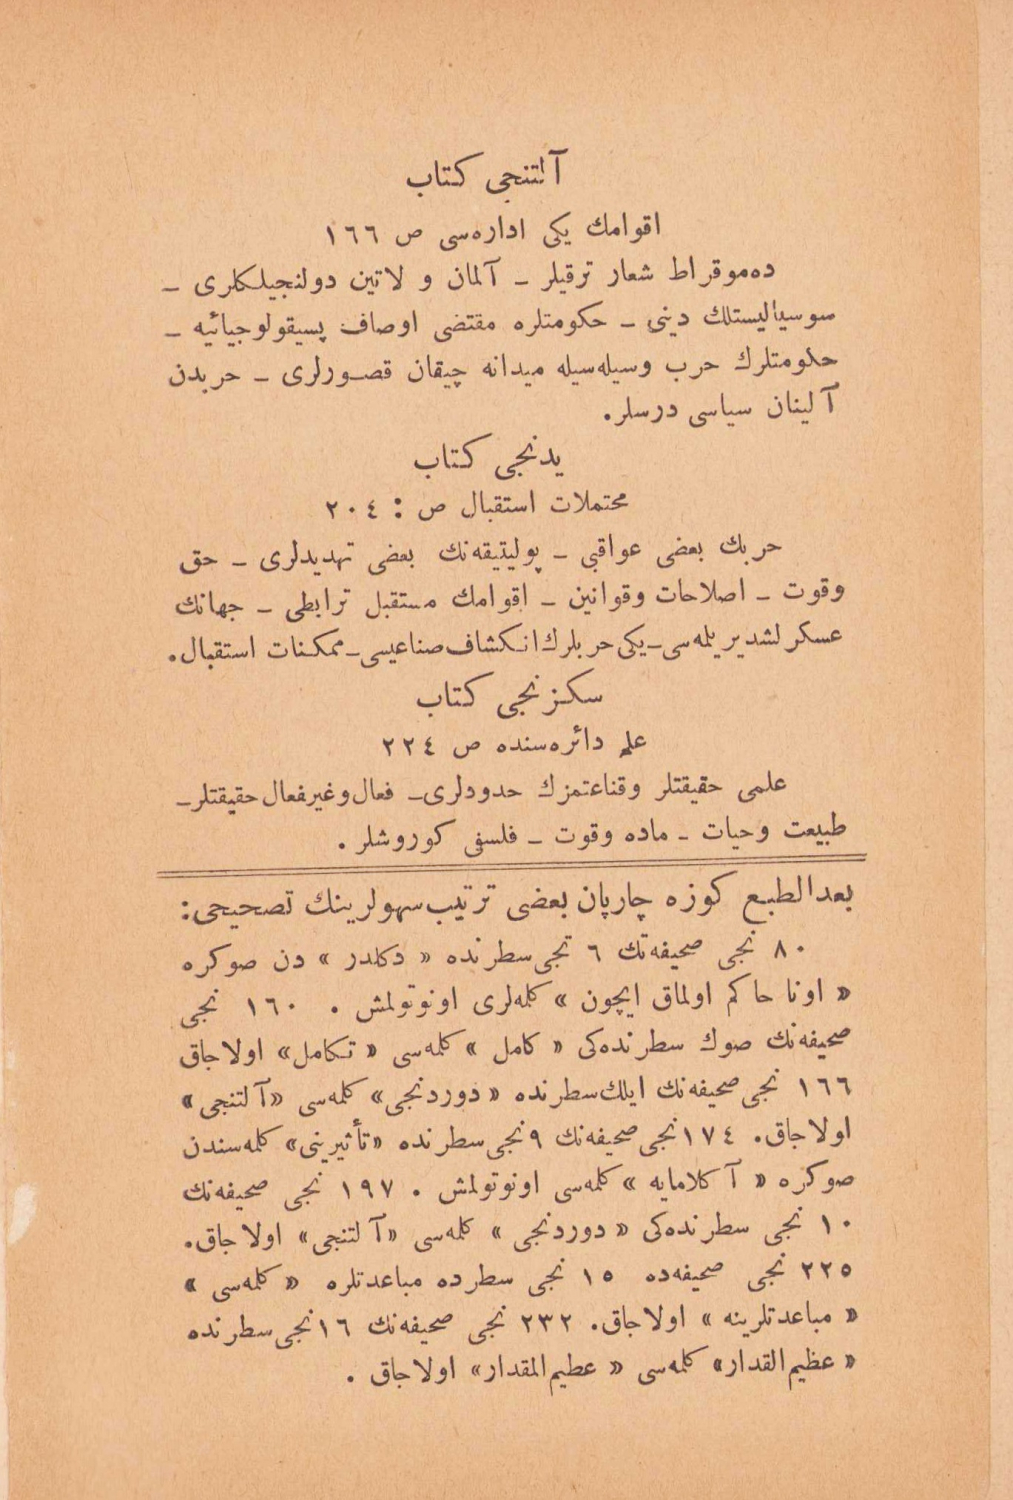 آلتنجی كتاب
اقوامك یكی اداره‌سی ص ١٦٦
ده‌موقراط شعار ترقیلر ـ آلمان و لاتین دولتجیلكلری ـ
سوسیالیستلك دینی ـ حكومتلره مقتضی اوصاف پسیقولوجیائیه ـ
حكومتلرك حرب وسیله‌سیله میدانه چیقان قصورلری ـ حربدن
آلینان سیاسی درسلر.
یدنجی كتاب
محتملات استقبال ص : ٢٠٤
حربك بعضی عواقبی ـ پولیتیقه‌نك بعضی تهدیدلری ـ حق
وقوت ـ اصلاحات وقوانین ـ اقوامك مستقبل ترابطی ـ جهانك
عسكرلشدیریلمه‌سی ـ یكی حربلرك انكشاف صناعیسی ـ ممكنات استقبال.
سكزنجی كتاب
علم دائره‌سنده ص ٢٢٤
علمی حقیقتلر وقناعتمزك حدودلری ـ فعال وغیرفعال حقیقتلر ـ
طبیعت وحیات ـ ماده وقوت ـ فلسفی كوروشلر .
بعدالطبع كوزه چارپان بعضی ترتیب سهولرینك تصحیحی:
٨٠ نجی صحیفه‌نك ٦ نجی سطرنده « دكلدر » دن صوكره
« اونا حاكم اولماق ایچون » كله‌لری اونوتولمش . ١٦٠ نجی
صحیفه‌نك صوك سطرنده‌كی « كامل » كله‌سی « تكامل» اولاجاق
١٦٦ نجی صحیفه‌نك ایلك سطرنده « دوردنجی» كله‌سی «آلتنجی»
اولاجاق. ١٧٤ نجی صحیفه‌نك ٩ نجی سطرنده «تأثیرینی» كله‌سندن
صوكره « آكلامایه » كله‌سی اونوتولمش . ١٩٧ نجی صحیفه‌نك
١٠ نجی سطرنده‌كی « دوردنجی » كله‌سی «آلتنجی» اولاجاق.
٢٢٥ نجی صحیفه‌ده ١٥ نجی سطرده مباعدتلره « كله‌سی »
« مباعدتلرینه » اولاجاق. ٢٣٢ نجی صحیفه‌نك ١٦ نجی سطرنده
« عظیم القدار» كله‌سی « عطیم المقدار» اولاجاق .